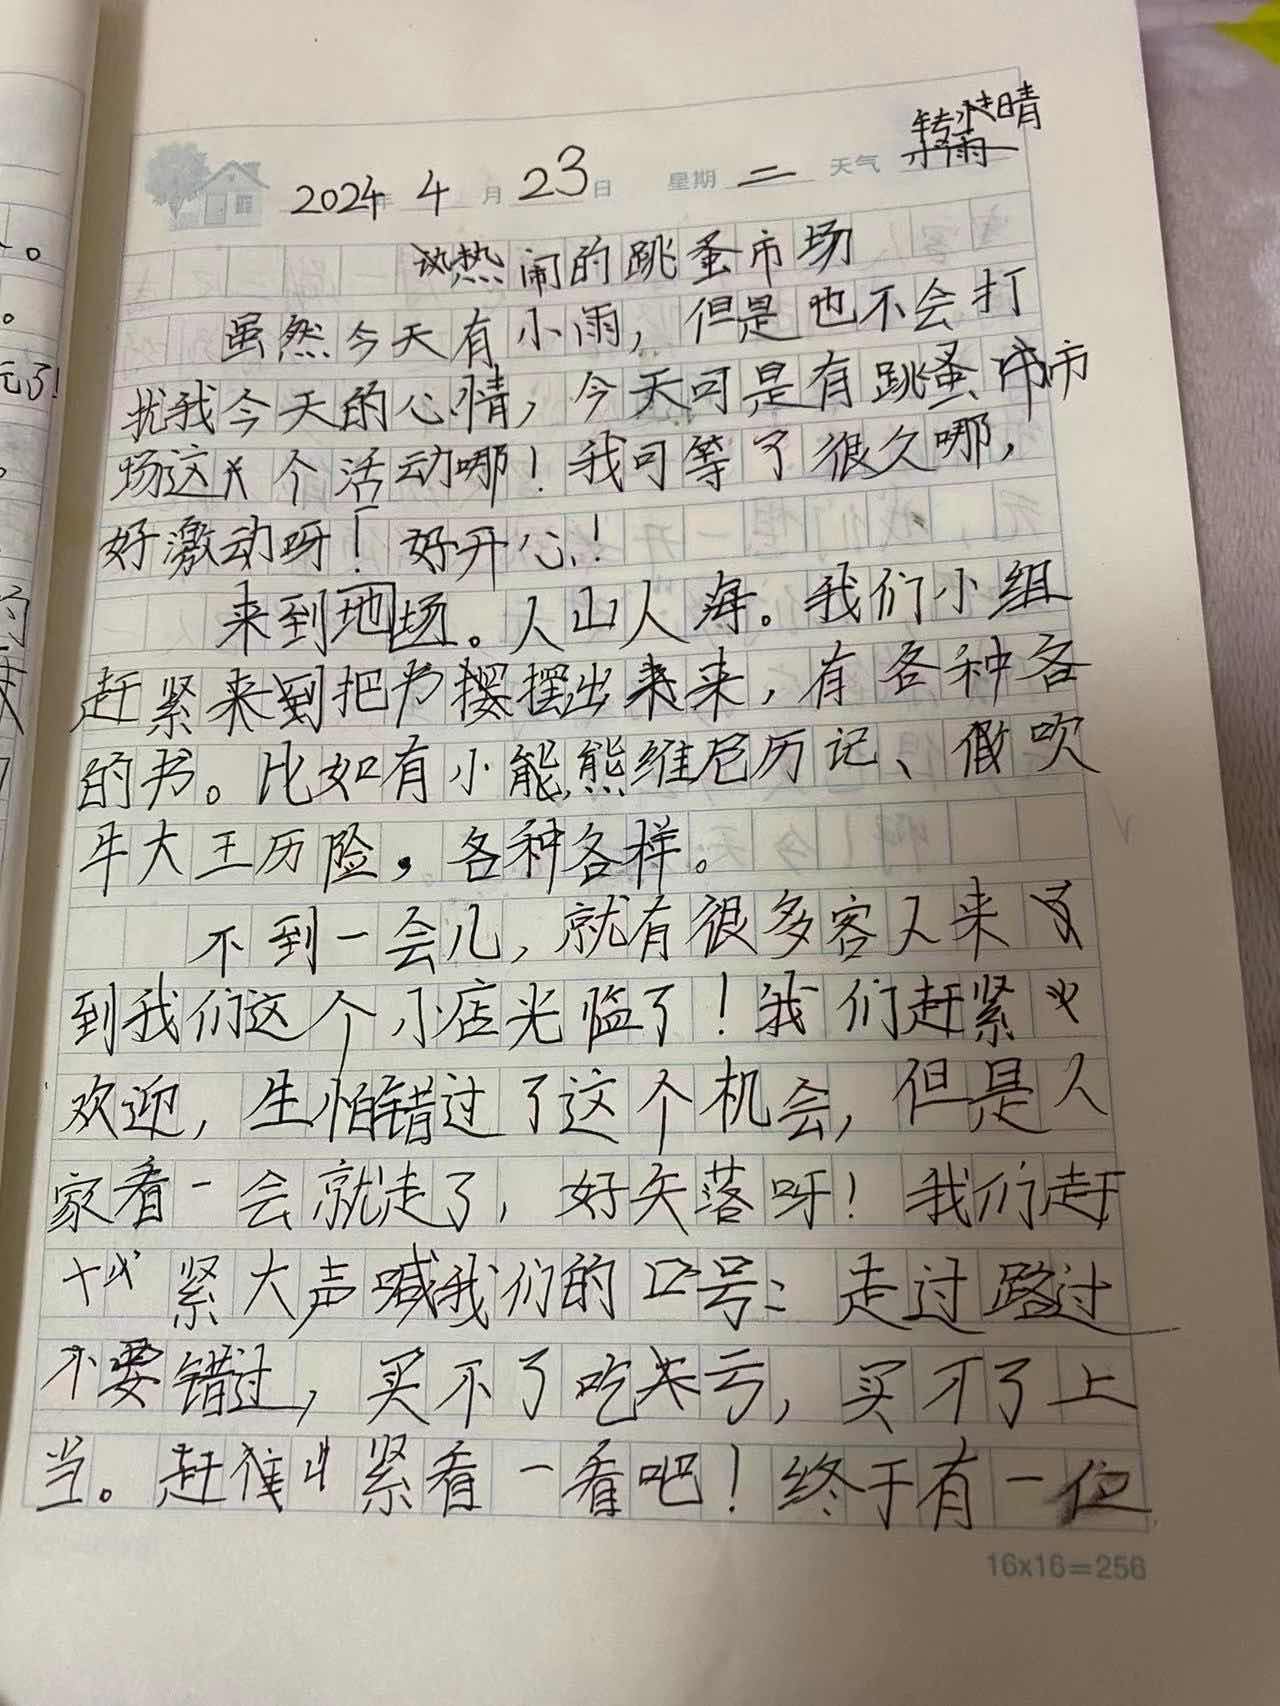 。
。
元了!
2024年 4月 23日 星期 二 天气 小雨 转晴
热闹的跳蚤市场
虽然今天有小雨，但是也不会打
扰我今天的心情，今天可是有跳蚤市
场这个活动哪！我可等了很久哪，
好激动呀！好开心！
来到地场。人山人海。我们小组
赶紧来到把书摆出来，有各种各
的书。比如有小熊维尼历记、吹
牛大王历险，各种各样。
不到一会儿，就有很多客人来
到我们这个小店光临了！我们赶紧
欢迎，生怕错过了这个机会，但是人
家看一会就走了，好失落呀！我们赶
紧大声喊我们的口号：走过路过
不要错过，买不了吃亏，买不了上
当。赶紧看一看吧！终于有一位
16x16=256